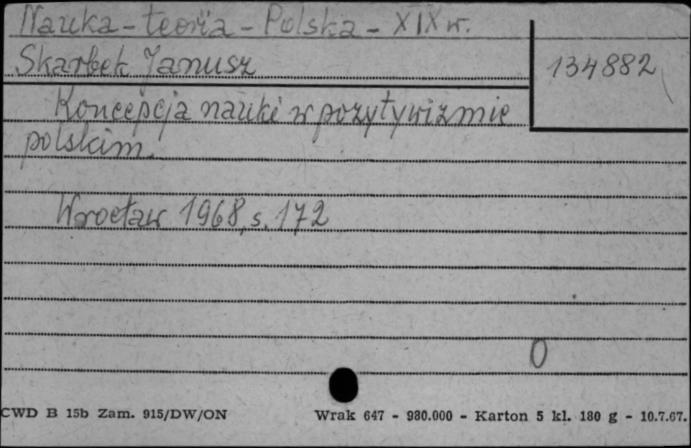 Nauka - teoria - Polska - XIX w.
Skarbek Janusz
134882
Koncepcja nauki w pozytywizmie
polskim.
Wrocław 1968, s. 172
0
CWD B 15b Zam. 915/DW/ON
Wrak 647 - 980.000 - Karton 5 kl. 180 g - 10.7.67.